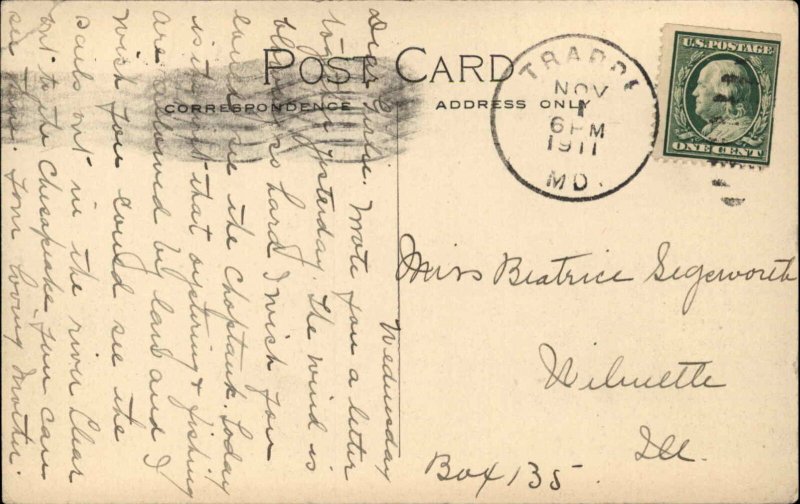 POST CARD
CORRESPONDENCE
ADDRESS ONLY
TRAPPE
NOV
1
6 PM
1911
MD.
U.S. POSTAGE
ONE CENT
Wednesday
Dear Girlie. Wrote you a letter
yesterday. The wind is
blowing so hard I wish you
could see the Choptank. Today
is the first that oystering & fishing
are allowed by law and I
wish you could see the
sails out in the river clear
out to the Chesapeake, you can
see them. Your loving Mother.
Miss Beatrice Segsworth
Wilmette
Ill.
Box 135.